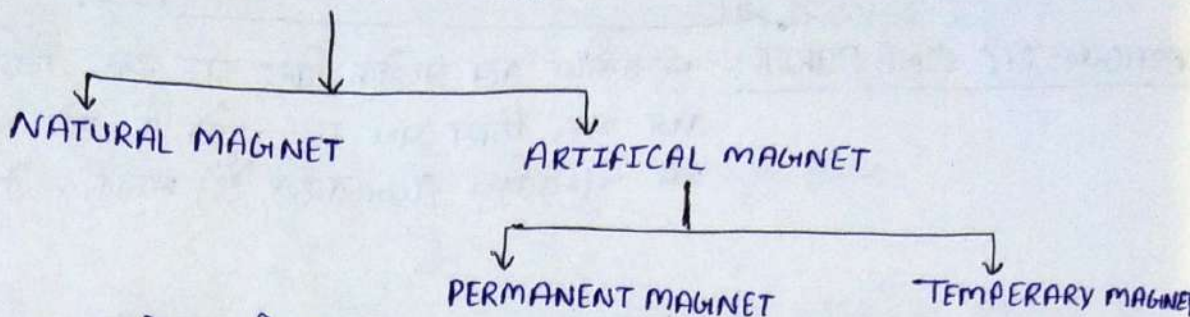 NATURAL MAGNET
ARTIFICAL MAGNET
PERMANENT MAGNET
TEMPERARY MAGNET